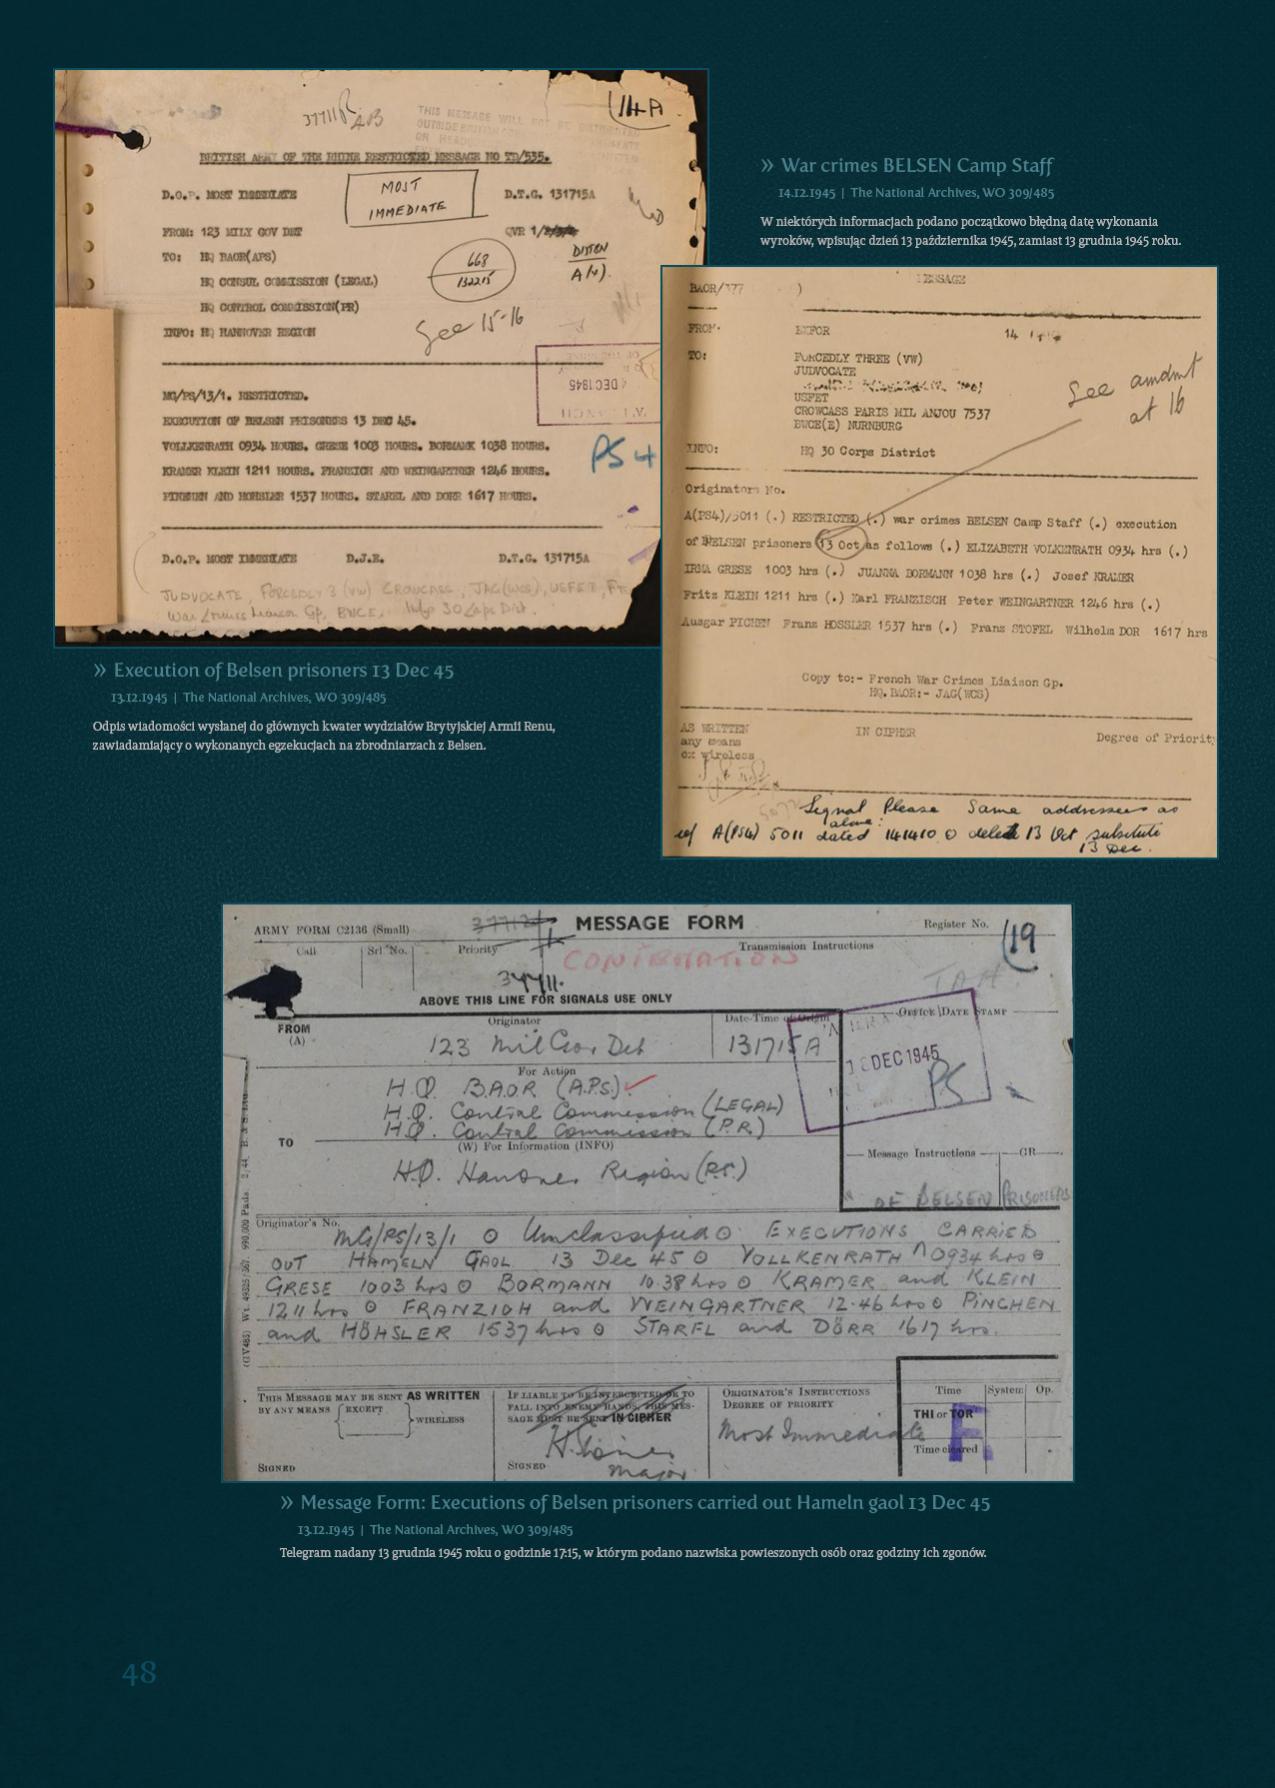 37711
A03
14A
THIS MESSAGE WILL NOT BE DISTRIBUTED
OUTSIDE BRITISH
OR HEADQ
BRITISH ARMY OF THE RHINE RESTRICTED MESSAGE NO TD/535.
D.O.P. MOST IMMEDIATE
MOST
IMMEDIATE
D.T.G. 131715A
FROM: 123 MILY GOV DET
QVR 1/
TO: HQ BAOR(APS)
668
132215
DISTBN
A(4).
HQ CONSUL COMMISSION (LEGAL)
HQ CONTROL COMMISSION(PR)
See 15-16
INFO: HQ HANNOVER REGION
DEC 1945
MG/PS/13/1. RESTRICTED.
EXECUTION OF BELSEN PRISONERS 13 DEC 45.
VOLLKENRATH 0934 HOURS. GRESE 1003 HOURS. BORMANK 1038 HOURS.
PS 4
KRAMER KLEIN 1211 HOURS. FRANZICH AND WEINGARTNER 1246 HOURS.
PINCHEN AND HOHSLER 1537 HOURS. STAREL AND DORR 1617 HOURS.
D.O.P. MOST IMMEDIATE D.J.E. D.T.G. 131715A
JUDVOCATE, FORCEDLY 3 (VW) CROWCASS, JAG(WCS), USFET, Fr
War Crimes Liaison Gp, BWCE, Info 30 Corps Dist.
» Execution of Belsen prisoners 13 Dec 45
13.12.1945 | The National Archives, WO 309/485
Odpis wiadomości wysłanej do głównych kwater wydziałów Brytyjskiej Armii Renu,
zawiadamiający o wykonanych egzekucjach na zbrodniarzach z Belsen.
» War crimes BELSEN Camp Staff
14.12.1945 | The National Archives, WO 309/485
W niektórych informacjach podano początkowo błędną datę wykonania
wyroków, wpisując dzień 13 października 1945, zamiast 13 grudnia 1945 roku.
MESSAGE
BAOR/377 )
FROM: EXFOR 14
TO: FORCEDLY THREE (VW)
JUDVOCATE
USFET
CROWCASS PARIS MIL ANJOU 7537
BWCE(E) NURNBURG
See amdmt
at 16
INFO: HQ 30 Corps District
Originators No.
A(PS4)/5011 (.) RESTRICTED (.) war crimes BELSEN Camp Staff (.) execution
of BELSEN prisoners 13 Oct as follows (.) ELIZABETH VOLKENRATH 0934 hrs (.)
IRMA GRESE 1003 hrs (.) JUANNA BORMANN 1038 hrs (.) Josef KRAMER
Fritz KLEIN 1211 hrs (.) Karl FRANZISCH Peter WEINGARTNER 1246 hrs (.)
Ausgar PICHEN Franz HOSSLER 1537 hrs (.) Franz STOFEL Wilhelm DOR 1617 hrs
Copy to:- French War Crimes Liaison Gp.
HQ.BAOR:- JAG(WCS)
AS WRITTEN IN CIPHER Degree of Priority
any means
ex wireless
Signal Please Same addressees as
above:
ref A(PS4) 5011 dated 141410 ⊙ delete 13 Oct substitute
13 Dec.
ARMY FORM C2136 (Small) MESSAGE FORM Register No. 19
Call Srl No. Priority Transmission Instructions
CONFIRMATION
37711.
ABOVE THIS LINE FOR SIGNALS USE ONLY
FROM
(A)
Originator
123 Mil Gov. Det
Date-Time of Origin
131715A
OFFICE DATE STAMP
DEC 1945
PS
TO
For Action
H.Q. B.A.O.R (A.P.S.)
H.Q. Control Commission (LEGAL)
H.Q. Control Commission (P.R.)
(W) For Information (INFO)
H.Q. Hanover Region (P.S.)
Message Instructions GR
OF BELSEN PRISONERS
Originator's No.
MG/PS/13/1 ⊙ Unclassified ⊙ EXECUTIONS CARRIED
OUT HAMELN GAOL 13 Dec 45 ⊙ VOLLKENRATH 0934 hrs ⊙
GRESE 1003 hrs ⊙ BORMANN 10.38 hrs ⊙ KRAMER and KLEIN
1211 hrs ⊙ FRANZICH and WEINGARTNER 12.46 hrs ⊙ PINCHEN
and HÖHSLER 1537 hrs ⊙ STARFL and DÖRR 1617 hrs.
THIS MESSAGE MAY BE SENT AS WRITTEN
BY ANY MEANS EXCEPT WIRELESS
SIGNED
IF LIABLE TO BE INTERCEPTED OR TO
FALL INTO ENEMY HANDS, THIS MES-
SAGE MUST BE SENT IN CIPHER
SIGNED
Major
ORIGINATOR'S INSTRUCTIONS
DEGREE OF PRIORITY
Most Immediate
Time System Op.
THI or TOR
Time cleared
F
» Message Form: Executions of Belsen prisoners carried out Hameln gaol 13 Dec 45
13.12.1945 | The National Archives, WO 309/485
Telegram nadany 13 grudnia 1945 roku o godzinie 17:15, w którym podano nazwiska powieszonych osób oraz godziny ich zgonów.
48